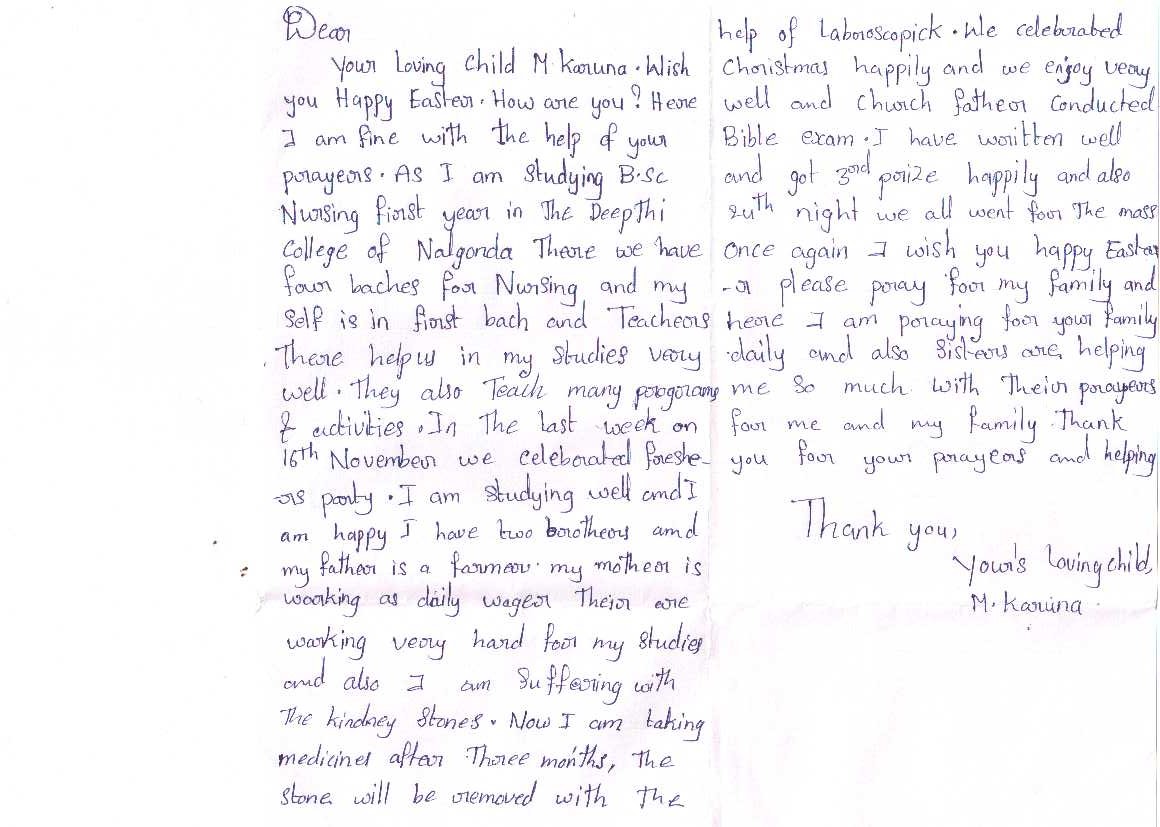 Dear
Your Loving Child M Karuna. Wish
you Happy Easter. How are you? Here
I am fine with the help of your
prayers. As I am Studying B.Sc
Nursing first year in The Deepthi
College of Nalgonda There we have
four baches for Nursing and my
Self is in first bach and Teachers
There help us in my studies very
well. They also Teach many programs
& activities. In The last week on
16th November we celebrated freshe-
-rs party. I am studying well and I
am happy I have two brothers and
my father is a farmer. my mother is
working as daily wager Their are
working very hard for my studies
and also I am Suffering with
The kindney Stones. Now I am taking
medicines after Three months, The
stone will be removed with the
help of Laboroscopick. We celebrated
Christmas happily and we enjoy very
well and church father conducted
Bible exam. I have written well
and got 3rd prize happily and also
24th night we all went for The mass
Once again I wish you happy Easter
-r please pray for my family and
here I am praying for your family
daily and also Sisters are, helping
me so much with Their prayers
for me and my family. Thank
you for your prayers and helping
Thank you,
Your's Loving child,
M. Karuna.